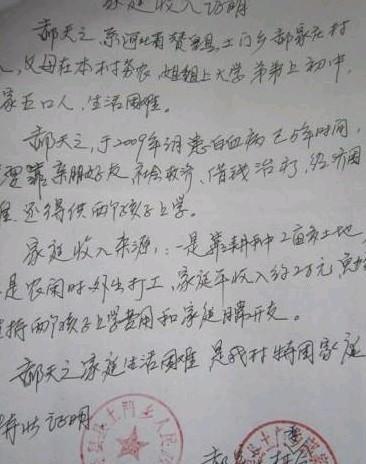 家庭收入证明
郝天之,系河北省赞皇县,土门乡郝家庄村
人,父母在本村务农,姐姐上大学弟弟上初中,
家五口人,生活困难。
郝天之,于2009年3月患白血病已5年时间,
靠亲朋好友 社会救济、借钱治疗,经济困
难 还得供两个孩子上学。
家庭收入来源:一是靠耕种2亩多土地,
是农闲时外出打工,家庭年收入约2万元,
持两个孩子上学费用和家庭日常开支。
郝天之家庭生活困难,是我村特困家庭
特此证明
县土门乡人民